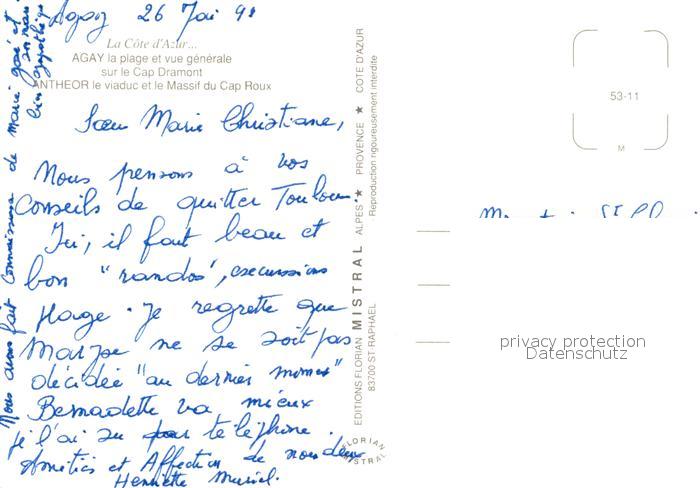 Agay 26 Mai 98
La Côte d'Azur...
AGAY la plage et vue générale
sur le Cap Dramont
ANTHEOR le viaduc et le Massif du Cap Roux
Sœur Marie Christiane,
Nous pensons à vos
conseils de quitter Toulon.
Ici, il fait beau et
bon "randos", excursions
plage. Je regrette que
Maryse ne se soit pas
décidée "au dernier moment"
Bernadette va mieux
je l'ai su par téléphone.
Amitiés et Affection de nous deux
Henriette Muriel.
Nous avons fait connaissance de Marie José et
son mari
bien sympathique
EDITIONS FLORIAN MISTRAL ALPES ★ PROVENCE ★ COTE D'AZUR
83700 ST-RAPHAEL
Reproduction rigoureusement interdite
FLORIAN
MISTRAL
53-11
M
privacy protection
Datenschutz